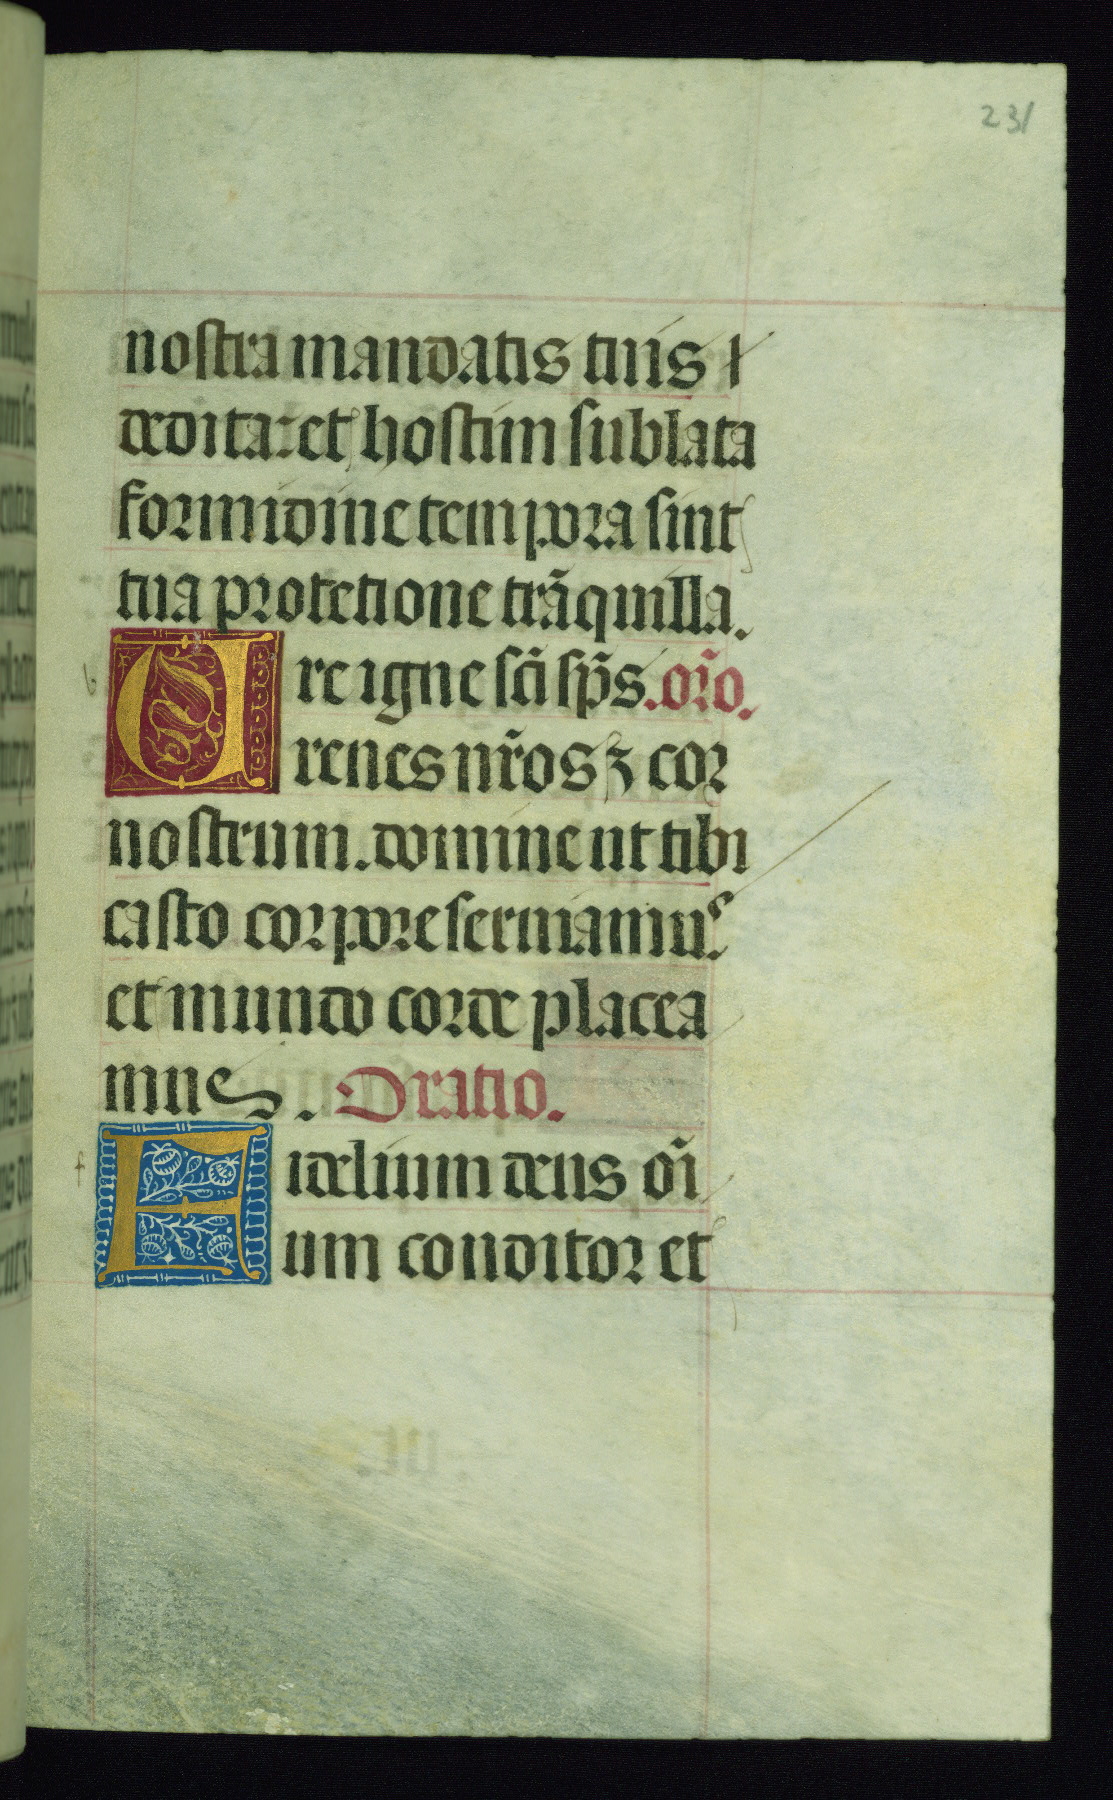 231
nostra mandatis tuis
dedita: et hostiu sublata
formidine tempora sint
tua protetione trãquilla.
b
Ure igne scĩ sp̃s. or̃o.
renes nr̃os ⁊ cor
nostrum. domine ut tibi
casto corpore seruiamus.
et mundo corde placea
mus. Oratio.
f
Fidelium deus oĩ
um conditor et